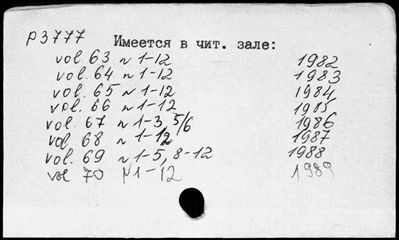 p3777
Имеется в чит. зале:
vol. 63 N 1-12 1982
vol. 64 N 1-12 1983
vol. 65 N 1-12 1984
vol. 66 N 1-12 1985
vol. 67 N 1-3, 5/6 1986
vol. 68 N 1-12 1987
vol. 69 N 1-5, 8-12 1988
vol 70 N 1-12 1989